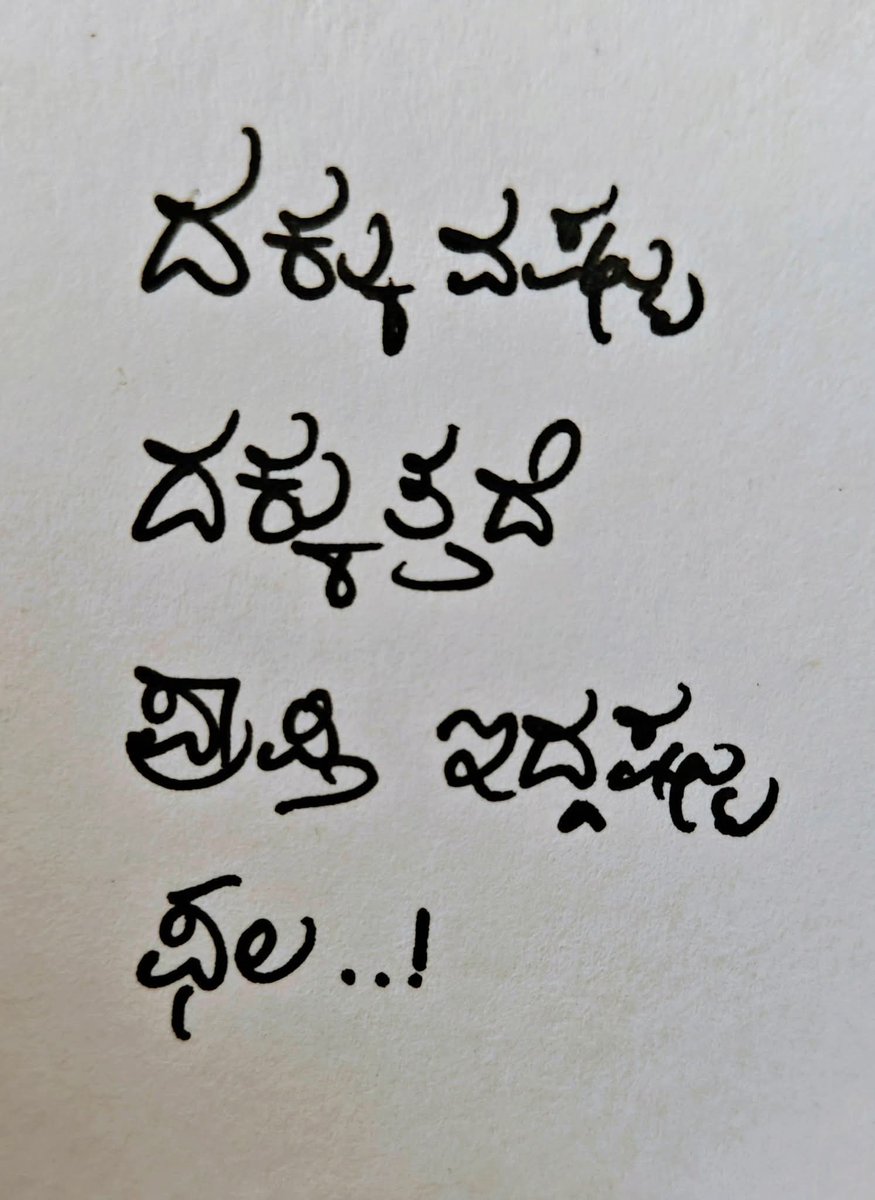 ದಕ್ಕುವಷ್ಟು
ದಕ್ಕುತ್ತದೆ
ಪ್ರಾಪ್ತಿ ಇದ್ದಷ್ಟು
ಫಲ ..!